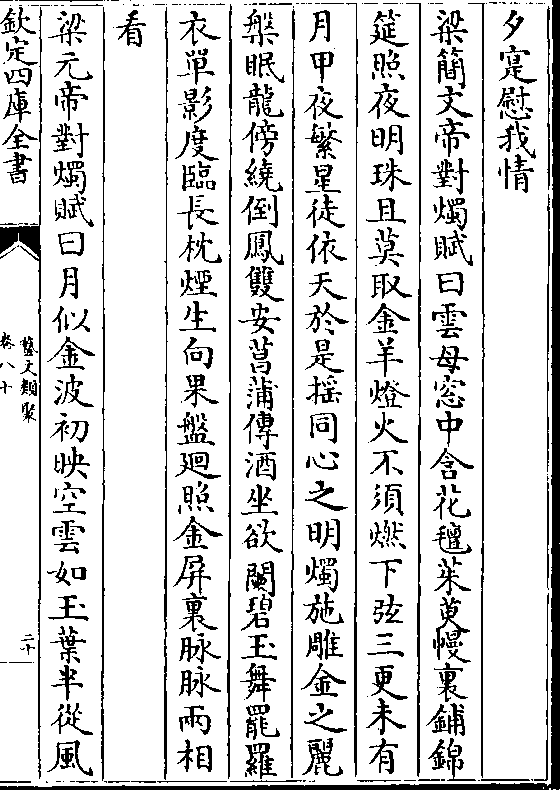 夕寔慰我情
梁簡文帝對燭賦曰雲母窓中含花氊茱萸幔裏鋪錦
筵照夜明珠且莫取金羊燈火不須燃下弦三更未有
月甲夜繁星徒依天於是摇同心之明燭施雕金之麗
槃眠龍傍繞倒鳳雙安菖蒲傳酒坐欲闌碧玉舞罷羅
衣單影度臨長枕煙生向果盤廻照金屏裏脉脉兩相
看
梁元帝對燭賦曰月似金波初映空雲如玉葉半從風
欽定四庫全書
藝文類聚
卷八十
二十